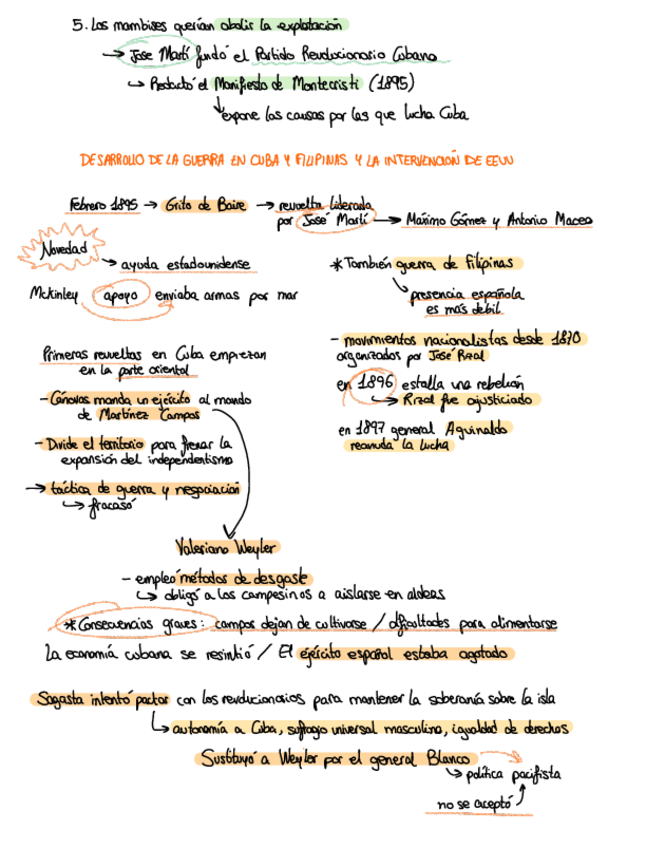 5. Los mambises querían abolir la explotación
→ Jose Martí fundó el Partido Revolucionario Cubano
↳ Redactó el Manifiesto de Montecristi (1895)
expone las causas por las que lucha Cuba
DESARROLLO DE LA GUERRA EN CUBA Y FILIPINAS Y LA INTERVENCIÓN DE EEUU
Febrero 1895 → Grito de Baire → revuelta liderada
por José Martí → Máximo Gómez y Antonio Maceo
Novedad
→ ayuda estadounidense
Mckinley apoyo enviaba armas por mar
* También guerra de Filipinas
presencia española
es más debil
- movimientos nacionalistas desde 1870
organizados por José Rizal
en 1896 estalla una rebelión
↳ Rizal fue ajusticiado
en 1897 general Aguinaldo
reanuda la lucha
Primeras revueltas en Cuba empiezan
en la parte oriental
- Cánovas manda un ejército al mando
de Martínez Campos
- Divide el territorio para frenar la
expansión del independentismo
→ táctica de guerra y negociación
↳ fracasó
Valeriano Weyler
- empleó métodos de desgaste
↳ obligó a los campesinos a aislarse en aldeas
* Consecuencias graves: campos dejan de cultivarse / dificultades para alimentarse
La economía cubana se resintió / El ejército español estaba agotado
Sagasta intentó pactar con los revolucionarios para mantener la soberanía sobre la isla
↳ autonomía a Cuba, sufragio universal masculino, igualdad de derechos
Sustituyó a Weyler por el general Blanco
↳ política pacifista
no se aceptó